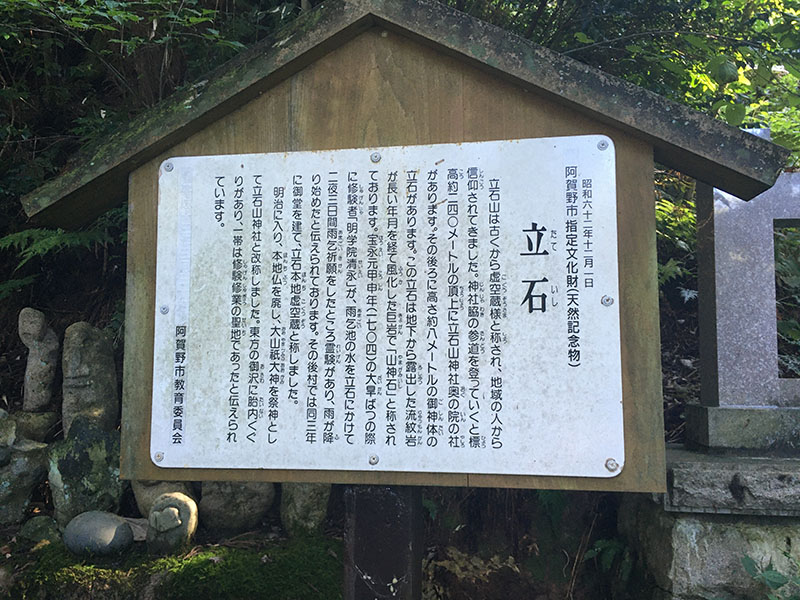 昭和六十二年十二月一日
阿賀野市指定文化財(天然記念物)
立石
立石山は古くから虚空蔵様と称され、地域の人から
信仰されてきました。神社脇の参道を登っていくと標
高約二四〇メートルの頂上に立石山神社奥の院の社
があります。その後ろに高さ約八メートルの御神体の
立石があります。この立石は地下から露出した流紋岩
が長い年月を経て風化した巨岩で「山神石」と称され
ております。宝永元甲申年(一七〇四)の大旱ばつの際
に修験者「明学院清永」が、雨乞池の水を立石にかけて
二夜三日間雨乞祈願をしたところ霊験があり、雨が降
り始めたと伝えられております。その後村では同三年
に御堂を建て、立石本地虚空蔵と称しました。
明治に入り、本地仏を廃し、大山祇大神を祭神とし
て立石山神社と改称しました。東方の御沢に胎内くぐ
りがあり、一帯は修験修業の聖地であったと伝えられ
ています。
阿賀野市教育委員会